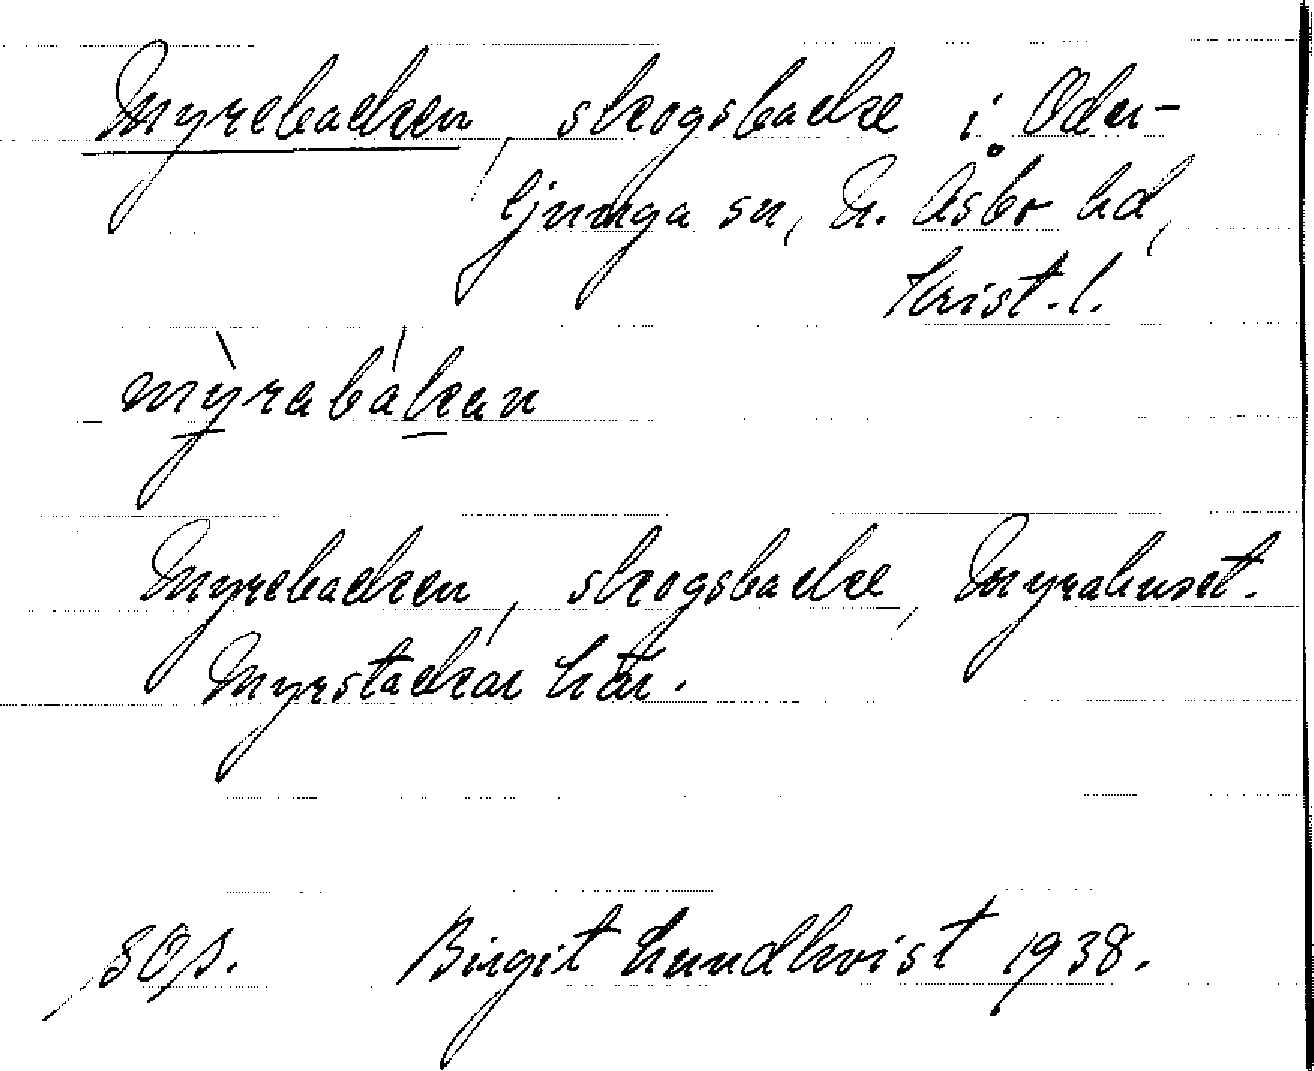 Myrebacken, skogsbacke i Oder-
ljunga sn, N. Åsbo hd,
Krist. l.
mỳrabákan
Myrebacken, skogsbacke, Myrahuset.
Myrstackar här.
Birgit Lundkvist 1938.